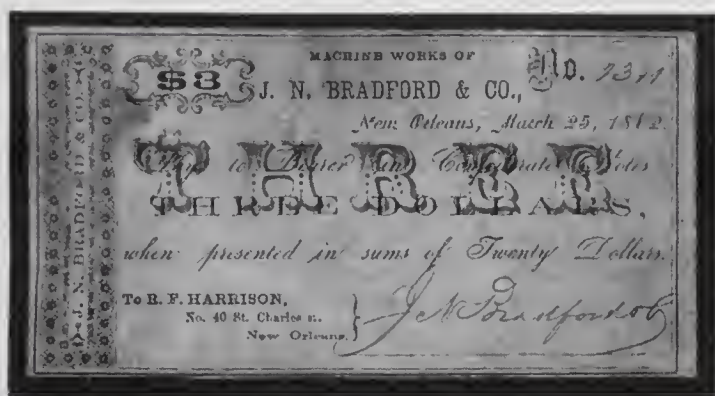 J. N. BRADFORD & CO.
$3
MACHINE WORKS OF
J. N. BRADFORD & CO.,
No.
New Orleans, March 25, 1862.
Pay to Bearer in Confederate Notes
THREE
THREE DOLLARS,
when presented in sums of Twenty Dollars.
To R. F. HARRISON,
No. 40 St. Charles st.
New Orleans.
J N Bradford & Co